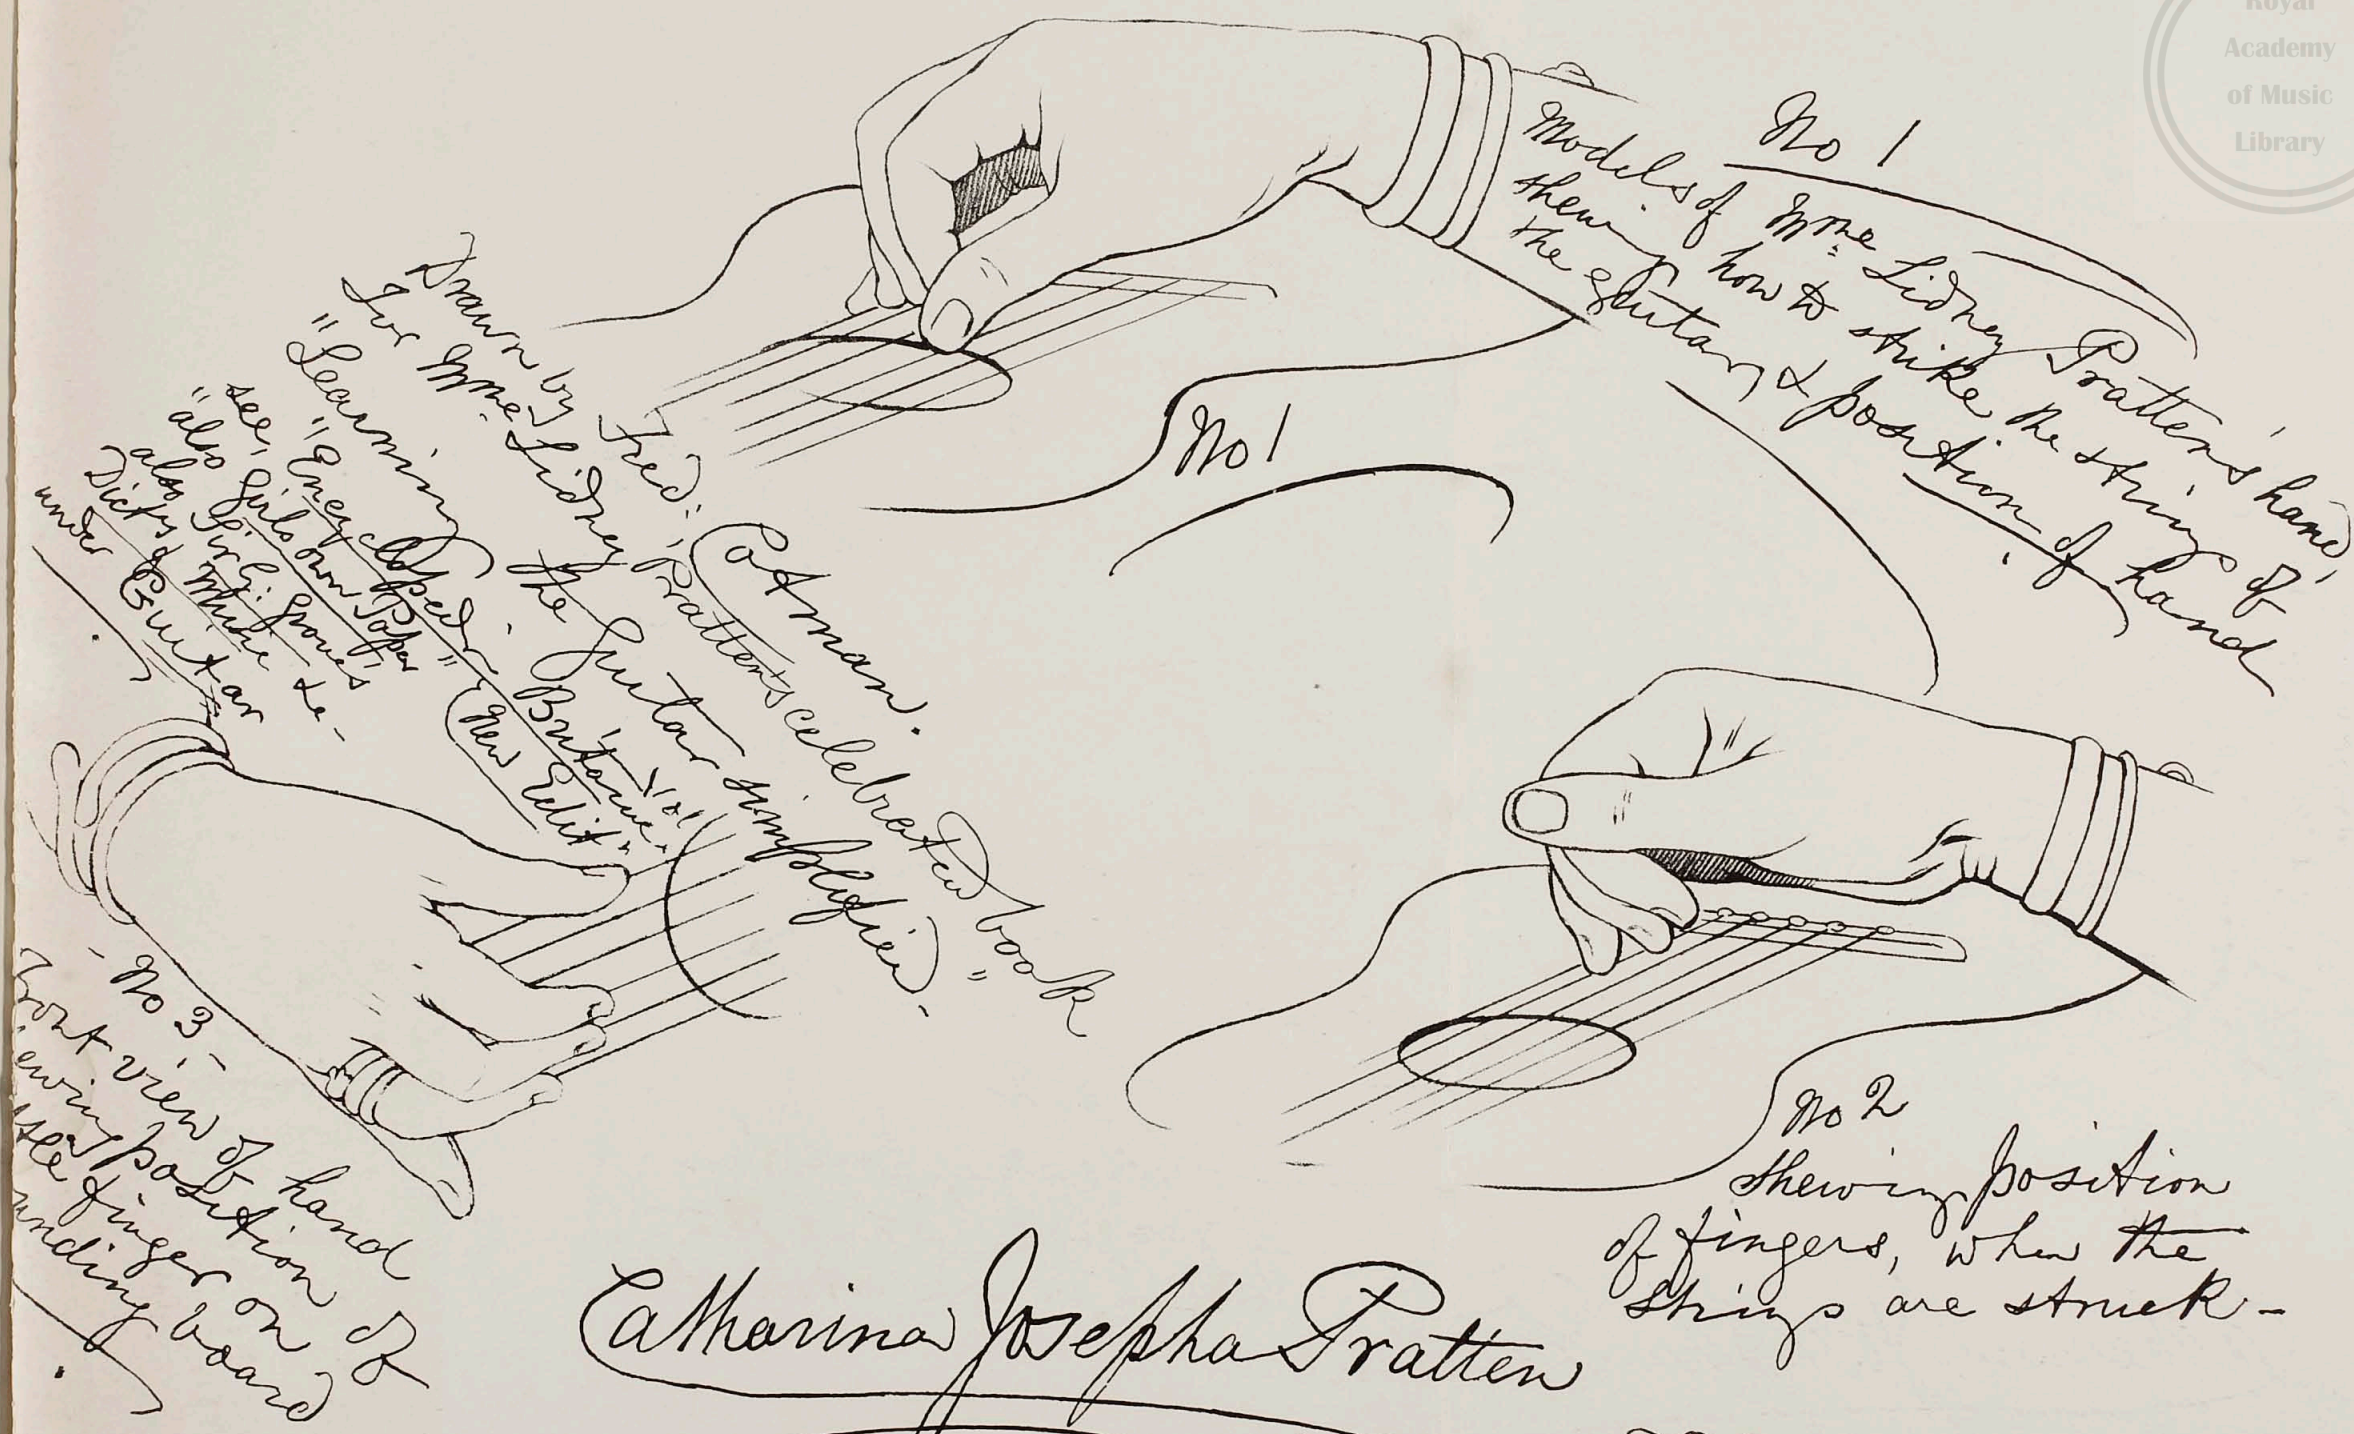 Royal
Academy
of Music
Library
No 1
Models of Mme. Sidney Pratten's hand,
shewing how to strike the strings of
the guitar, & position of hand
No 1
Drawn by Fred: Cotman.
For Mme. Sidney Pratten's celebrated book
"Learning the Guitar simplified."
see, "Encycloped. Britannic.
(New Edit
"also Girls own Paper"
also Sir G: Grove's
Dicty of Music &c-
under Guitar
No 2
shewing position
of fingers, when the
strings are struck-
-No 3-
Front view of hand
position of
finger on
board
Catharina Josepha Pratten